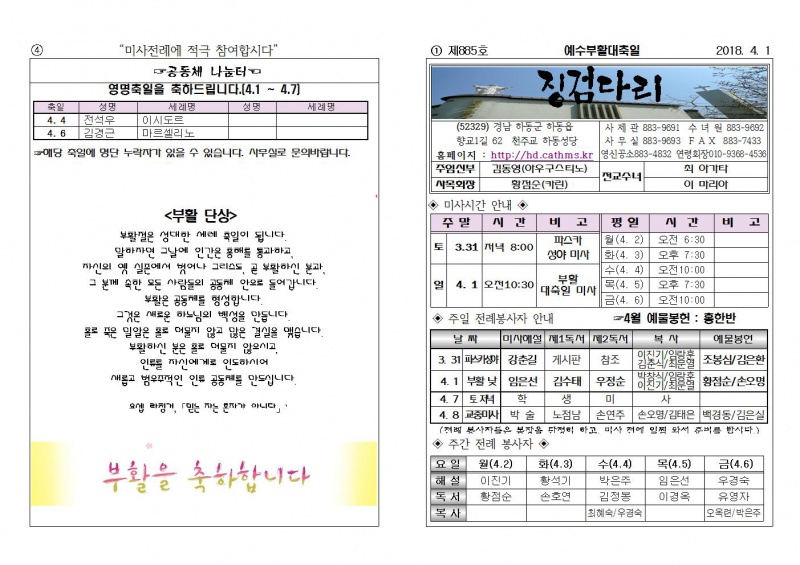 ④ “미사전례에 적극 참여합시다”
☞공동체 나눔터☜
영명축일을 축하드립니다.(4.1 ~ 4.7)
축일 성명 세례명 성명 세례명
4. 4 전석우 이시도르
4. 6 김경근 마르셀리노
☞해당 축일에 명단 누락자가 있을 수 있습니다. 사무실로 문의바랍니다.
<부활 단상>
부활절은 성대한 세례 축일이 됩니다.
말하자면 그날에 인간은 홍해를 통과하고,
자신의 옛 실존에서 벗어나 그리스도, 곧 부활하신 분과,
그 분께 속한 모든 사람들의 공동체 안으로 들어갑니다.
부활은 공동체를 형성합니다.
그것은 새로운 하느님의 백성을 만듭니다.
홀로 죽은 밀알은 홀로 머물지 않고 많은 결실을 맺습니다.
부활하신 분은 홀로 머물지 않으시고,
인류를 자신에게로 인도하시어
새롭고 범우주적인 인류 공동체를 만드십니다.
요셉 라칭거, 「믿는 자는 혼자가 아니다」
부활을 축하합니다
① 제885호 예수부활대축일 2018. 4. 1
징검다리
(52329) 경남 하동군 하동읍
향교1길 62 천주교 하동성당
홈페이지 : http://hd.cathms.kr
사 제 관 883-9691 수 녀 원 883-9692
사 무 실 883-9693 F A X 883-7433
영신공소883-4832 연령회장010-9368-4536
주임신부 김동영(아우구스티노) 전교수녀 최 아가타
사목회장 황점순(카린) 이 마리아
◈ 미사시간 안내 ◈
주 말 시 간 비 고 평 일 시 간 비 고
토 3.31 저녁 8:00 파스카 성야 미사 월(4. 2) 오전 6:30
화(4. 3) 오후 7:30
일 4. 1 오전10:30 부활 대축일 미사 수(4. 4) 오전10:00
목(4. 5) 오후 7:30
금(4. 6) 오전10:00
◈ 주일 전례봉사자 안내 ☞4월 예물봉헌 : 홍한반
날 짜 미사해설 제1독서 제2독서 복 사 예물봉헌
3. 31 파스카성야 강춘길 게시판 참조 조봉심/김은환
4. 1 부활 낮 임은선 김수태 우정순 황점순/손오명
4. 7 토 저녁 학 생 미 사
4. 8 교중미사 박 술 노점남 손연주 손오명/김태은 백경동/김은실
(전례 봉사자들은 복장을 단정히 하고, 미사 전에 일찍 와서 준비를 합시다.)
◈ 주간 전례 봉사자 ◈
요 일 월(4.2) 화(4.3) 수(4.4) 목(4.5) 금(4.6)
해 설 이진기 황석기 박은주 임은선 우경숙
독 서 황점순 손호연 김정몽 이경옥 유영자
복 사 최혜숙/우경숙 오옥련/박은주